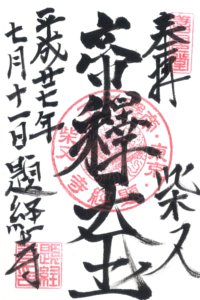 奉拝
柴又
帝釋天王
平成廿七年
七月十一日
題経寺